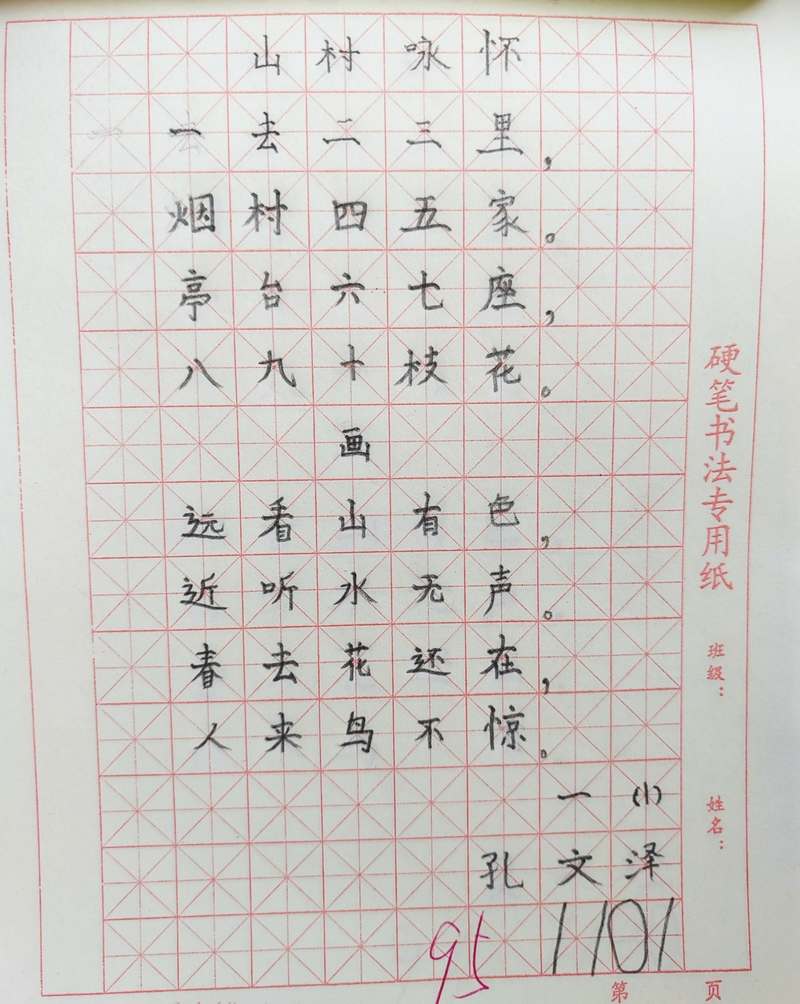 山村咏怀
一去二三里，
烟村四五家。
亭台六七座，
八九十枝花。
画
远看山有色，
近听水无声。
春去花还在，
人来鸟不惊。
一(1)
孔文泽
1101
95
硬笔书法专用纸
班级：
姓名：
第 页